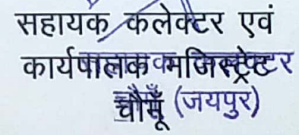 सहायक कलेक्टर एवं
कार्यपालक मजिस्ट्रेट
चौमूँ (जयपुर)